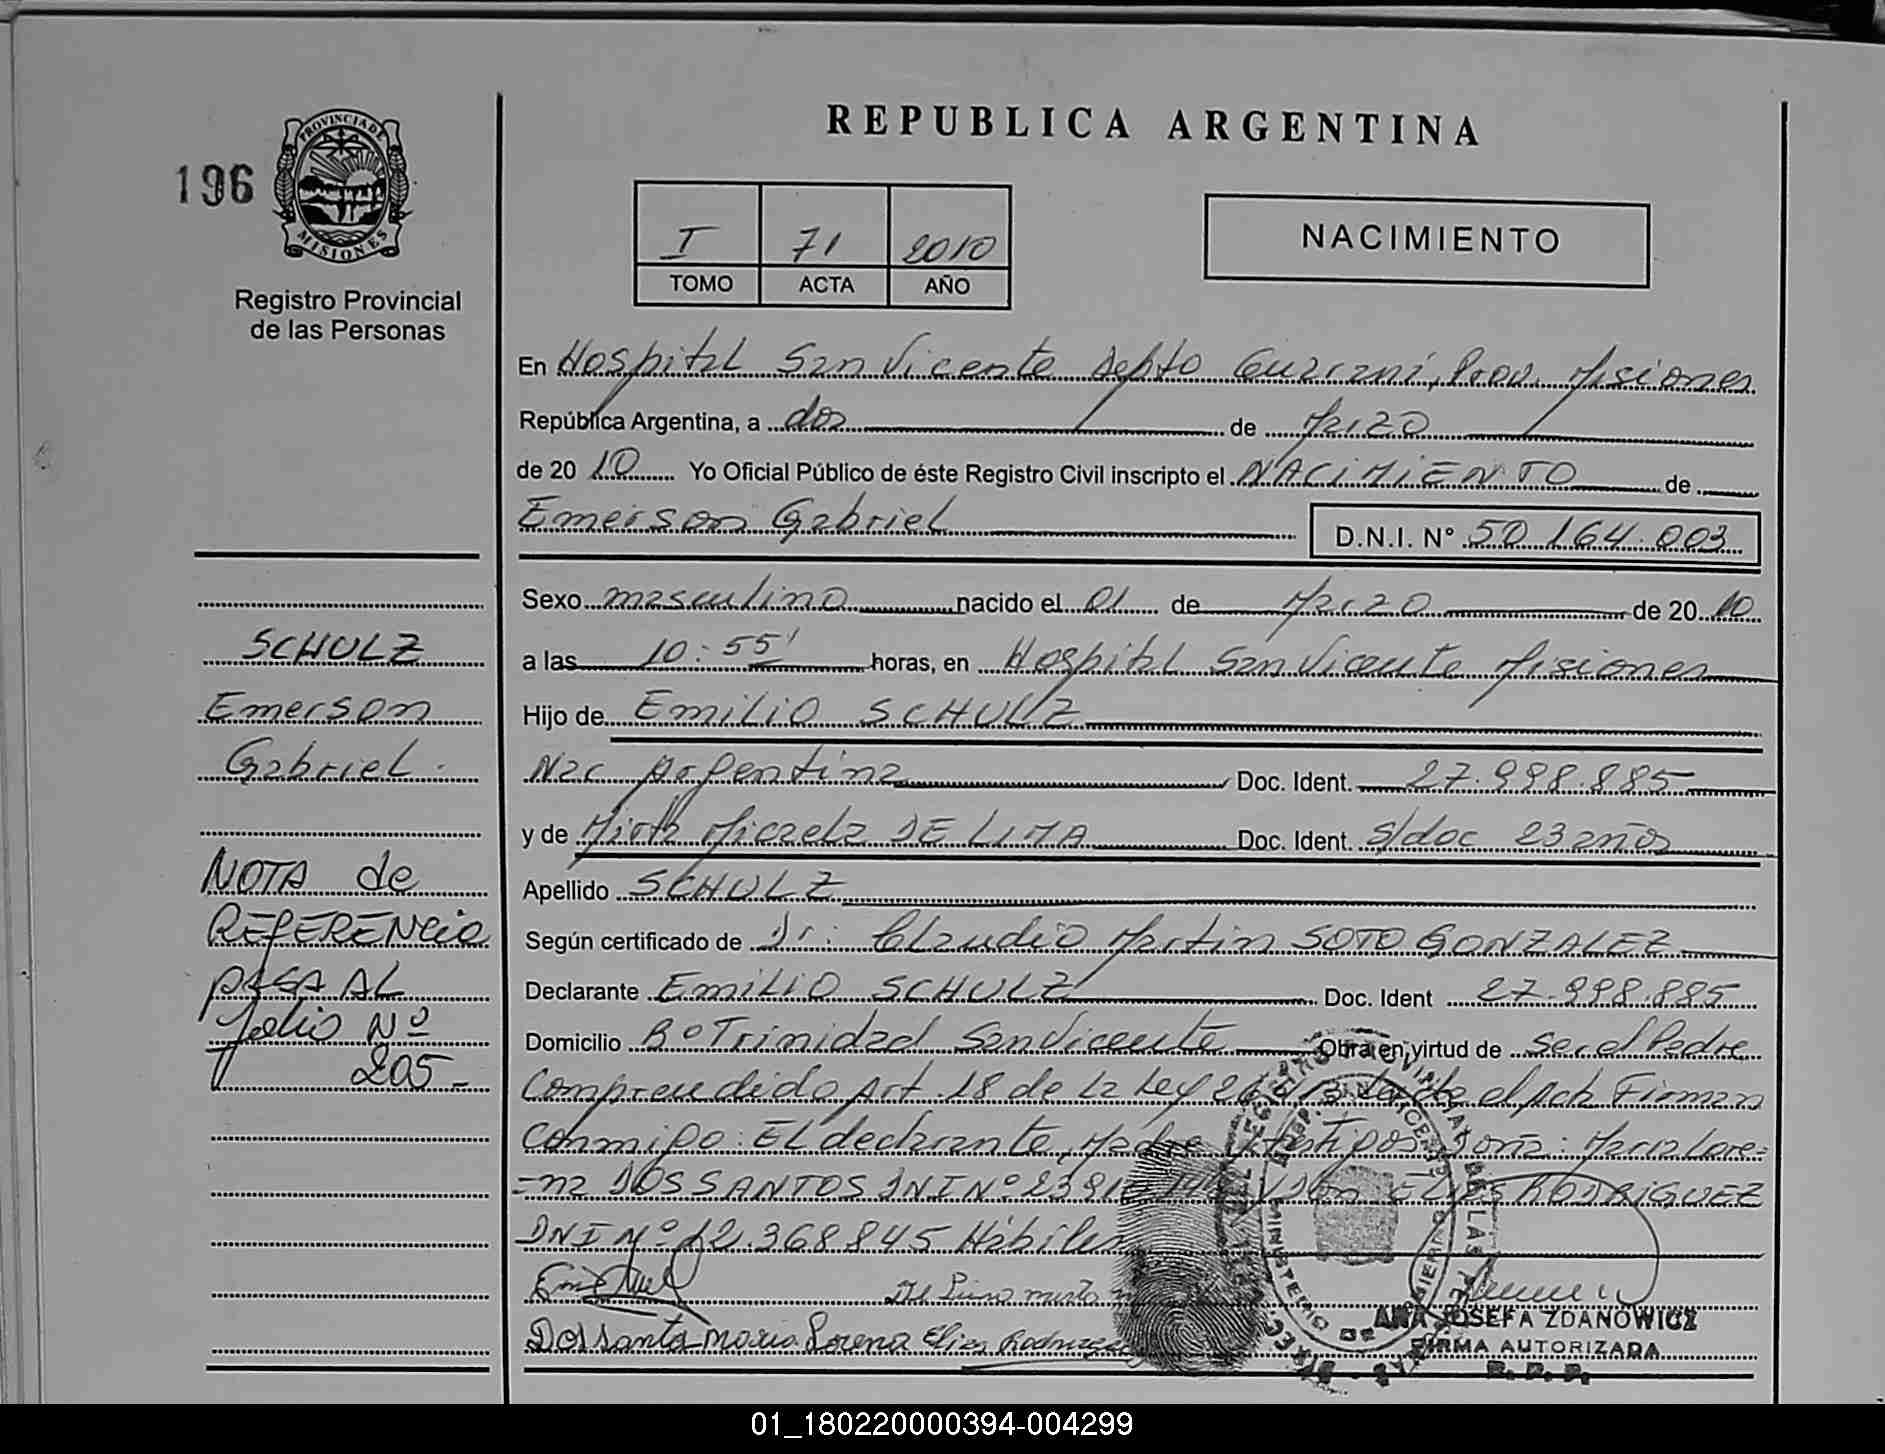 REPUBLICA ARGENTINA
196
PROVINCIA DE
MISIONES
Registro Provincial
de las Personas
I 71 2010
TOMO ACTA AÑO
NACIMIENTO
En Hospital San Vicente depto Guarani, Prov. Misiones
República Argentina, a dos de Marzo
de 20 10 Yo Oficial Público de éste Registro Civil inscripto el NACIMIENTO de
Emerson Gabriel D.N.I. Nº 50.164.003
Sexo masculino nacido el 01 de Marzo de 20 10
a las 10:55' horas, en Hospital San Vicente Misiones
Hijo de Emilio SCHULZ
Nac Argentina Doc. Ident. 27.998.885
y de Mirta Micaela DE LIMA Doc. Ident. S/doc 23 años
Apellido SCHULZ
Según certificado de Dr. Claudio Martin SOTO GONZALEZ
Declarante EMILIO SCHULZ Doc. Ident 27.998.885
Domicilio Bº Trinidad San Vicente Obra en virtud de Ser el Padre
Comprendido Art. 18 de la Ley el Acta Firman
Conmigo: El declarante, Madre y testigos Doña: Maria Lore=
=na DOS SANTOS DNI Nº ELIAS RODRIGUEZ
DNI Nº 12.368.845 Hábiles
Dos santos maria Lorena Elias Rodriguez
ANA JOSEFA ZDANOWICZ
FIRMA AUTORIZADA
R. P. P.
SCHULZ
Emerson
Gabriel.
NOTA de
REFERENCIA
PASA AL
folio Nº
205-
01_180220000394-004299